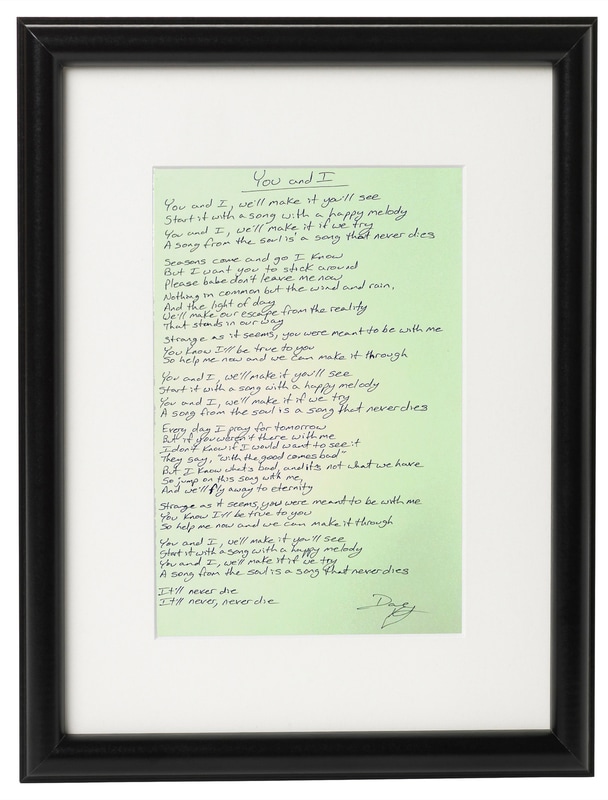 You and I
You and I, we'll make it you'll see
Start it with a song with a happy melody
You and I, we'll make it if we try
A song from the soul is a song that never dies
Seasons come and go I know
But I want you to stick around
Please babe don't leave me now
Nothing in common but the wind and rain,
And the light of day
We'll make our escape from the reality
That stands in our way
Strange as it seems, you were meant to be with me
You know I'll be true to you
So help me now and we can make it through
You and I, we'll make it you'll see
Start it with a song with a happy melody
You and I, we'll make it if we try
A song from the soul is a song that never dies
Every day I pray for tomorrow
But if you weren't there with me
I don't know if I would want to see it
They say, "with the good comes bad"
But I know what's bad, and it's not what we have
So jump on this song with me,
And we'll fly away to eternity
Strange as it seems, you were meant to be with me
You know I'll be true to you
So help me now and we can make it through
You and I, we'll make it you'll see
Start it with a song with a happy melody
You and I, we'll make it if we try
A song from the soul is a song that never dies
It'll never die
It'll never, never die
Dave